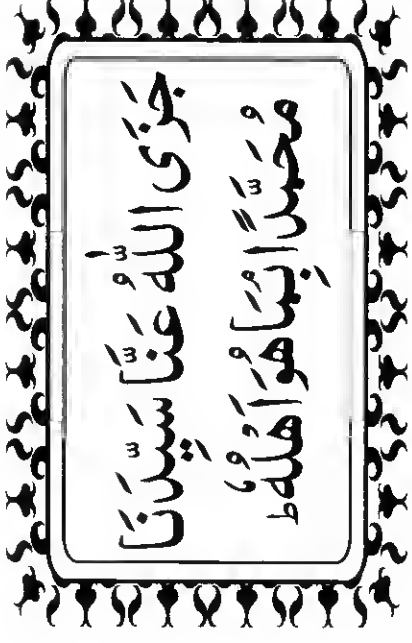 جَزَى اللّٰهُ عَنَّا سَيِّدَنَا
مُحَمَّدًا بِمَا هُوَ اَهْلُهٗ ط